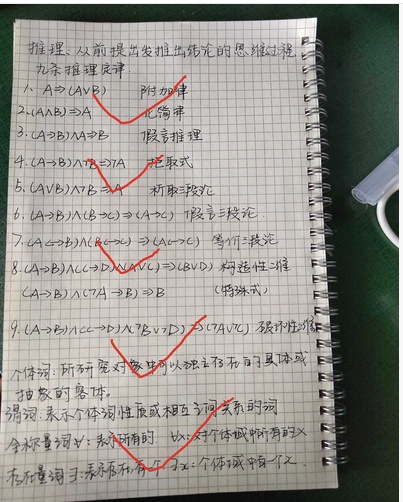 推理：从前提出发推出结论的思维过程
九条推理定律
1. A⇒(A∨B) 附加律
2.(A∧B)⇒A 化简律
3.(A→B)∧A⇒B 假言推理
4.(A→B)∧¬B⇒¬A 拒取式
5.(A∨B)∧¬B⇒A 析取三段论
6.(A→B)∧(B→C)⇒(A→C) 假言三段论
7.(A↔B)∧(B↔C)⇒(A↔C) 等价三段论
8.(A→B)∧(C→D)∧(A∨C)⇒(B∨D) 构造性二难
(A→B)∧(¬A→B)⇒B (特殊式)
9.(A→B)∧(C→D)∧(¬B∨¬D)⇒(¬A∨¬C) 破坏性二难
个体词：所研究对象中可以独立存在的具体或
抽象的客体。
谓词：表示个体词性质或相互之间关系的词
全称量词∀：表示所有的. ∀x：对个体域中所有的x
存在量词∃：表示存在,有个 ∃x：个体域中有一个x.